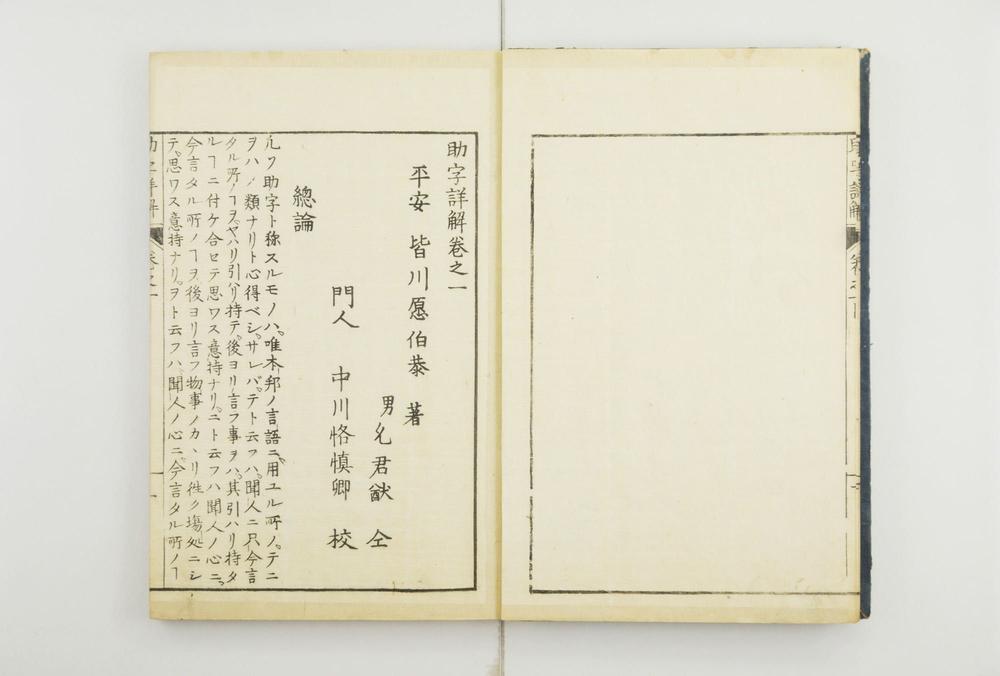 助字詳解卷之一
平安 皆川愿伯恭 著
男允君猷 仝
門人 中川恪慎卿 校
總論
凡ソ助字ト称スルモノハ。唯本邦ノ言語ニ。用ユル所ノ。テニ
ヲハノ類ナリト心得ベシ。サレバ。テト云フハ。聞人ニ只今言
タル所ノヿヲ。ヤハリ引ハリ持テ。後ヨリ言フ事ヲハ。其引ハリ持タ
ルヿニ付ケ合セテ思ワス意持ナリ。ニト云フハ聞人ノ心ニ。
今言タル所ノヿヲ後ヨリ言フ物事ノカヽリ徃ク塲処ニシ
テ。思ワス意持ナリ。ヲト云フハ。聞人ノ心ニ。今言タル所ノヿ
助字詳解 卷之一 一
助字詳解